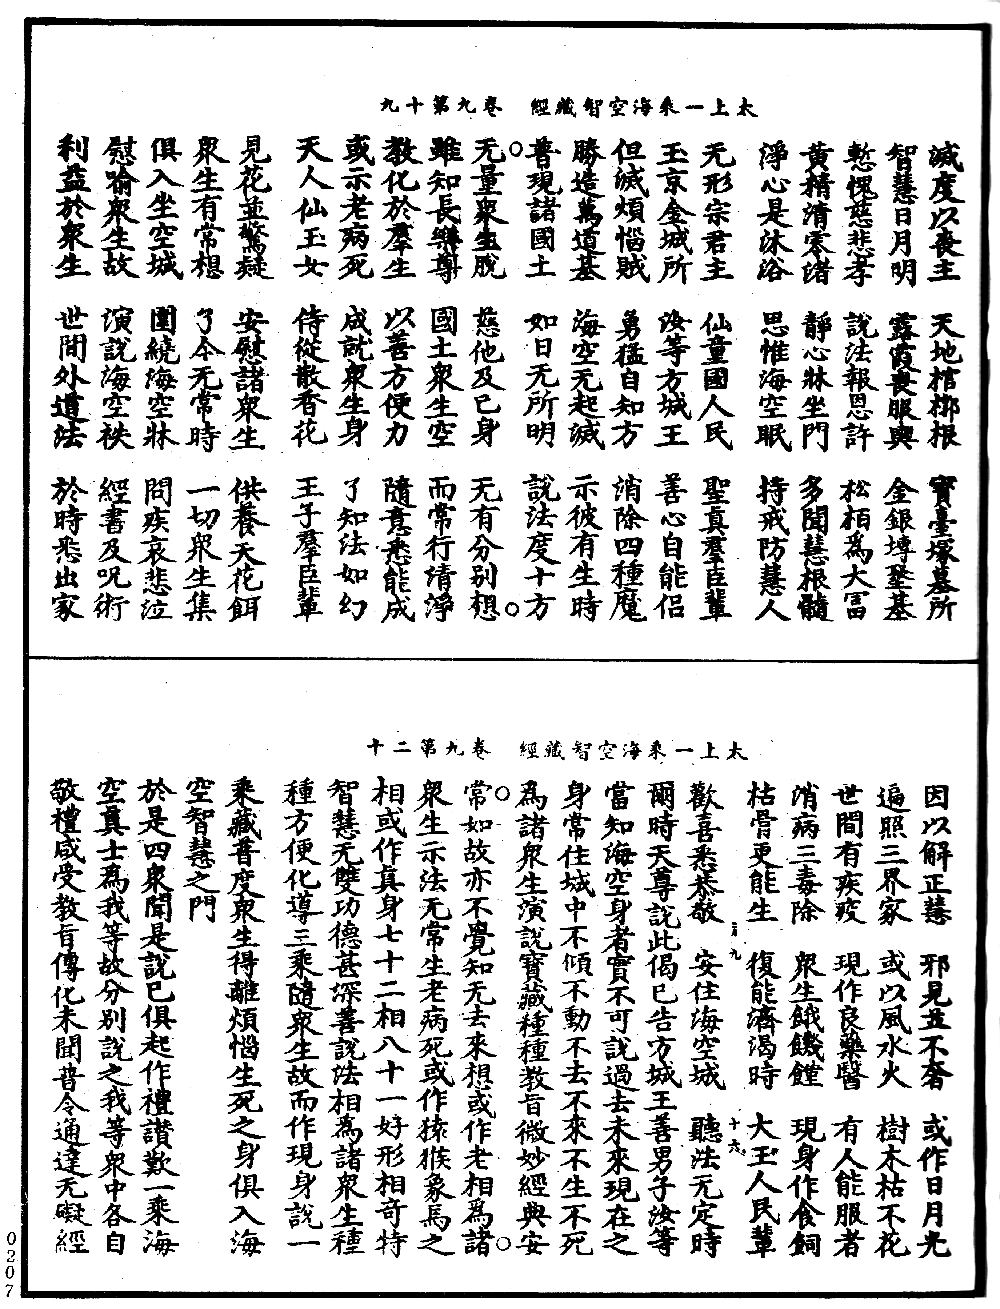 太上一乘海空智藏經　卷九第十九
滅度以喪主　天地棺槨根　寶臺塚墓所
智慧日月明　露霞喪服輿　金銀塼壂基
慙愧慈悲孝　說法報恩許　松栢為大冨
黃精清零渚　靜心牀坐門　多聞慧根髓
淨心是沐浴　思惟海空眠　持戒防慧人
无形宗君主　仙童國人民　聖真羣臣輩
玉京金城所　汝等方城王　善心自能侶
但滅煩惱賊　勇猛自知方　消除四種魔
勝造萬道基　海空无起滅　示彼有生時
普現諸國土　如日无所明　說法度十方
无量衆生脫　慈他及己身　无有分別想
雖知長樂尊　國土衆生空　而常行清淨
教化於羣生　以善方便力　隨意悉能成
或示老病死　成就衆生身　了知法如幻
天人仙玉女　侍從散香花　王子羣臣輩
見花並驚疑　安慰諸衆生　供養天花餌
衆生有常想　了今无常時　一切衆生集
俱入坐空城　圍繞海空牀　問疾哀悲泣
慰喻衆生故　演說海空袟　經書及呪術
利益於衆生　世間外道法　於時悉出家
太上一乘海空智藏經　卷九第二十
因以解正慧　邪見並不奢　或作日月光
遍照三界家　或以風水火　樹木枯不花
世間有疾疫　現作良藥醫　有人能服者
消病三毒除　衆生餓饑饉　現身作食飼
枯骨更能生　復能濟渴時　大王人民輩
歡喜悉恭敬　安住海空城　聽法无定時
爾時天尊說此偈已告方城王善男子汝等
當知海空身者實不可說過去未來現在之
身常住城中不傾不動不去不來不生不死
為諸衆生演說寶藏種種教旨微妙經典安
常如故亦不覺知无去來想或作老相為諸
衆生示法无常生老病死或作猿猴象馬之
相或作真身七十二相八十一好形相奇特
智慧无雙功德甚深善說法相為諸衆生種
種方便化導三乘隨衆生故而作現身說一
乘藏普度衆生得離煩惱生死之身俱入海
空智慧之門
於是四衆聞是說已俱起作禮讃歎一乘海
空真士為我等故分別說之我等衆中各自
敬禮咸受教旨傳化未聞普令通達无礙經
0207